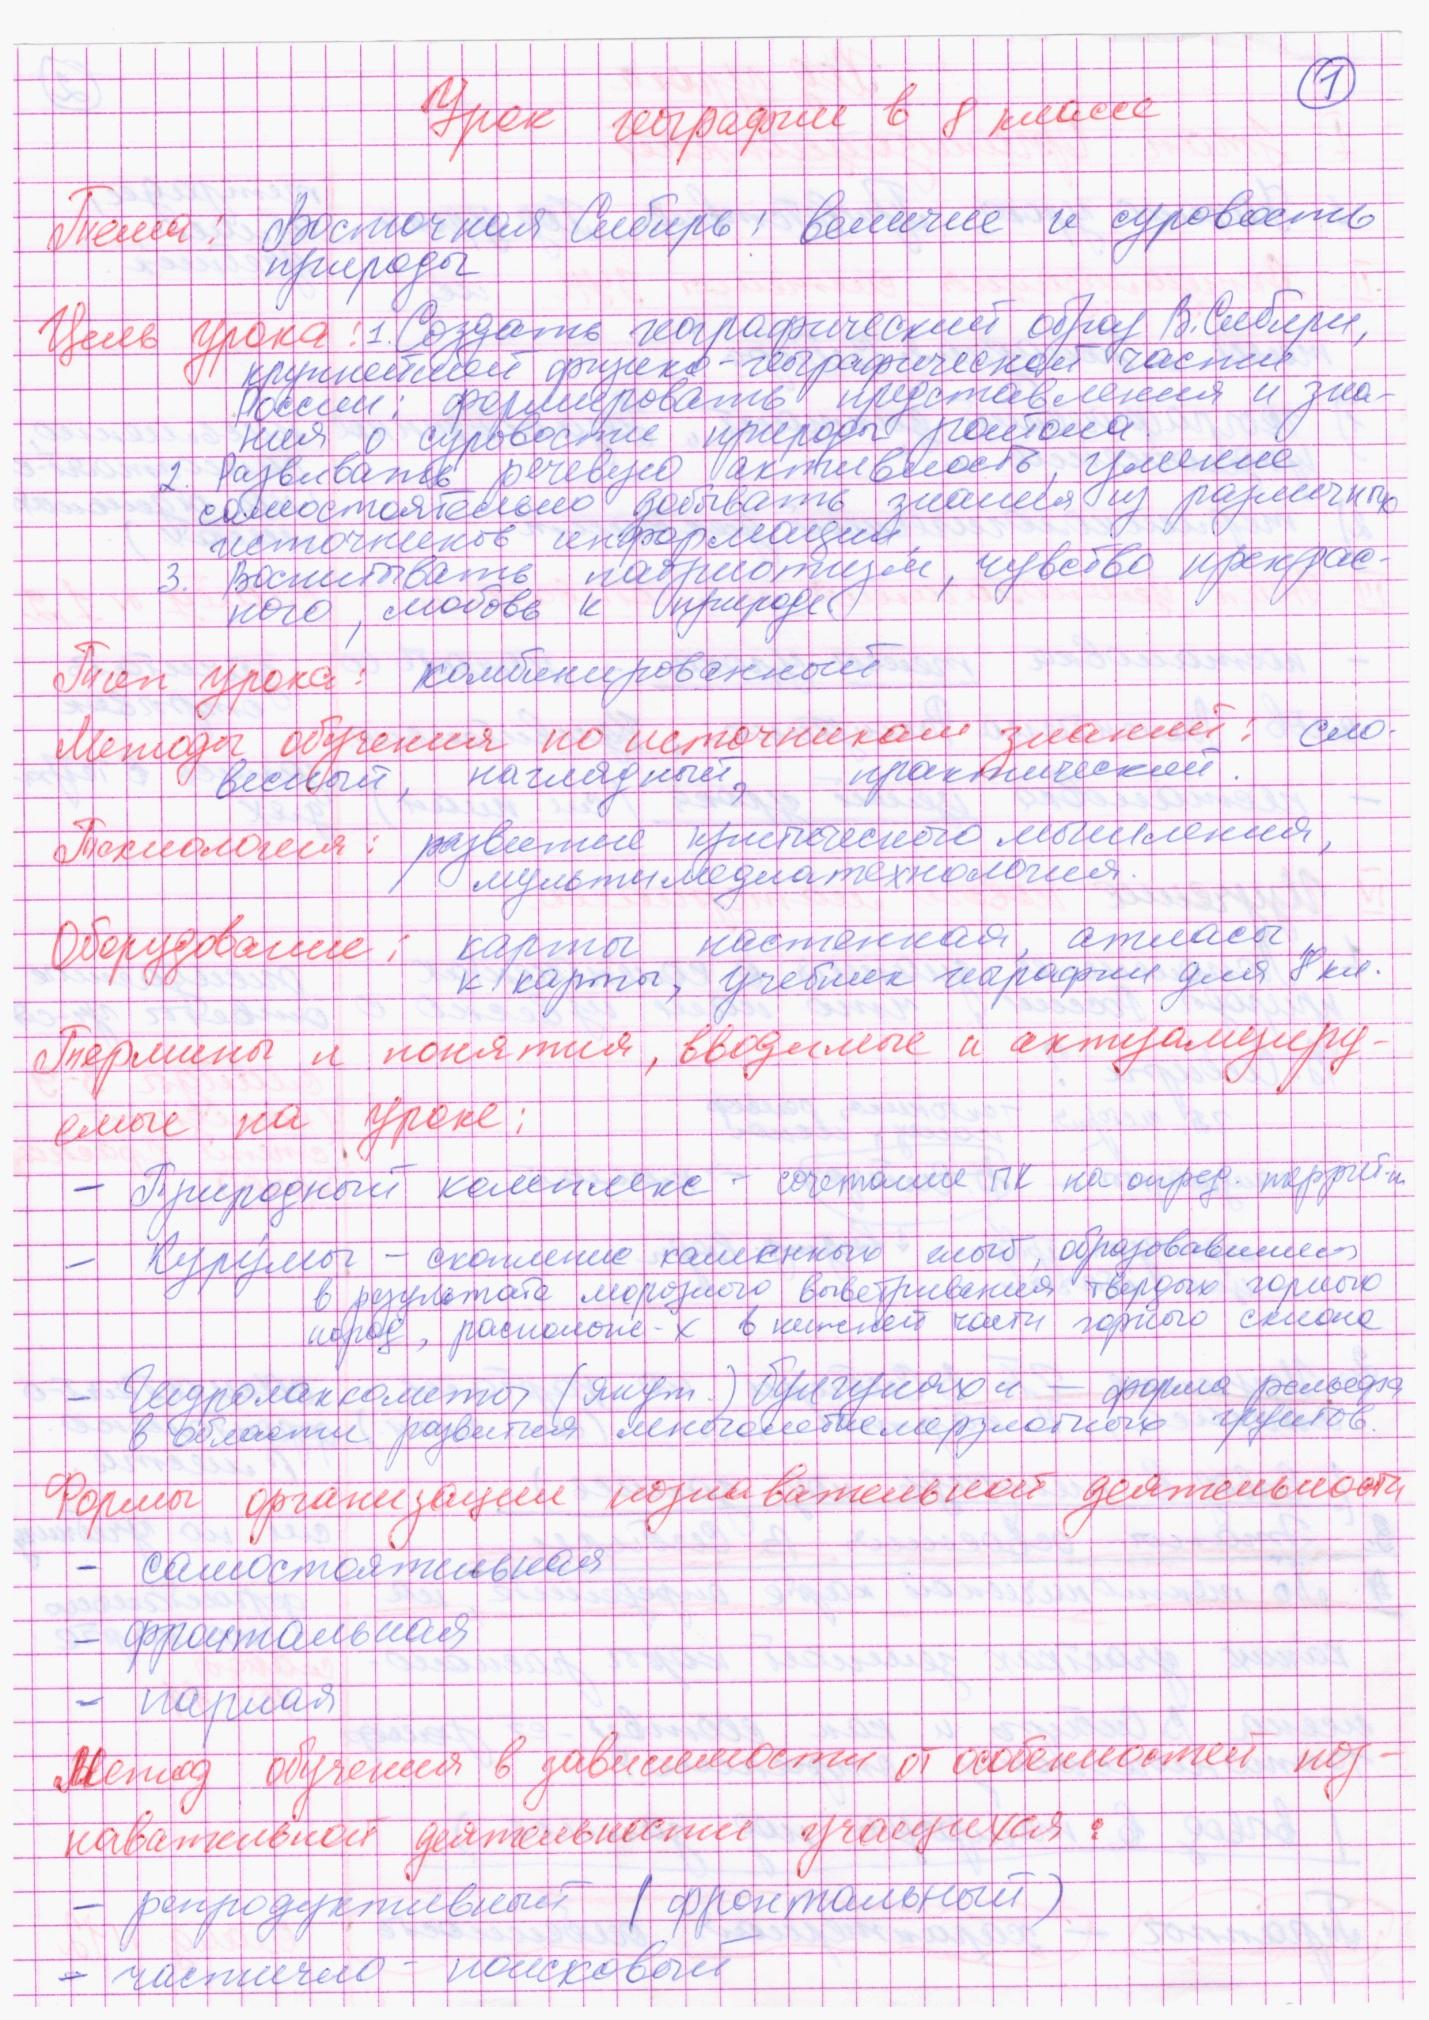 1
Урок географии в 8 классе
Тема: Восточная Сибирь: величие и суровость
природы
Цель урока: 1. Создать географический образ В. Сибири,
крупнейшей физико-географической части
России; формировать представления и зна-
ния о суровости природы района.
2. Развивать речевую активность, умение
самостоятельно добывать знания из различных
источников информации
3. Воспитывать патриотизм, чувство прекрас-
ного, любовь к природе
Тип урока: комбинированный
Методы обучения по источникам знаний: сло-
весный, наглядный, практический.
Технология: развитие критического мышления,
мультимедиатехнология.
Оборудование: карты настенная, атласы,
к карты, учебник географии для 8 кл.
Термины и понятия, вводимые и актуализиру-
емые на уроке:
- Природный комплекс - сочетание ПК на опред. террит-и
- Куру́мы - скопление каменных глыб, образовавшихся
в результате морозного выветривания твердых горных
пород, расположе-х в нижней части горного склона
- Гидролакколиты (якут.) булгуняхи - форма рельефа
в области развития многолетнемерзлотных грунтов.
Формы организации познавательной деятельности
- самостоятельная
- фронтальная
- парная
Метод обучения в зависимости от особенностей поз-
навательной деятельности учащихся:
- репродуктивный (фронтальный)
- частично - поисковый